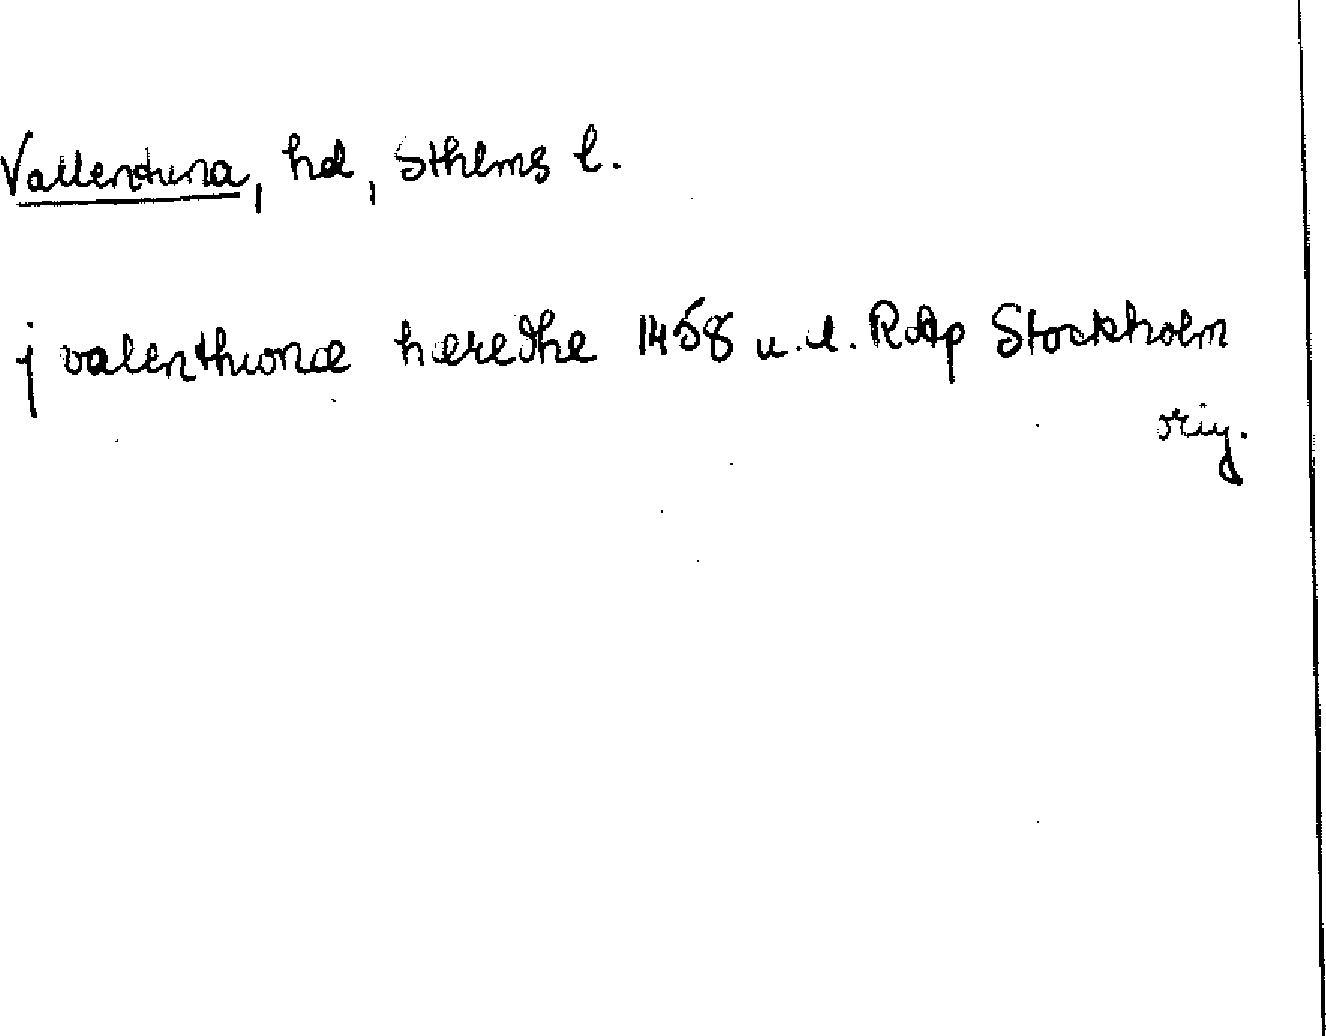 Vallentuna, hd, Sthlms l.
j valenthwnæ hæredhe 1458 u.d. RAp Stockholm
orig.